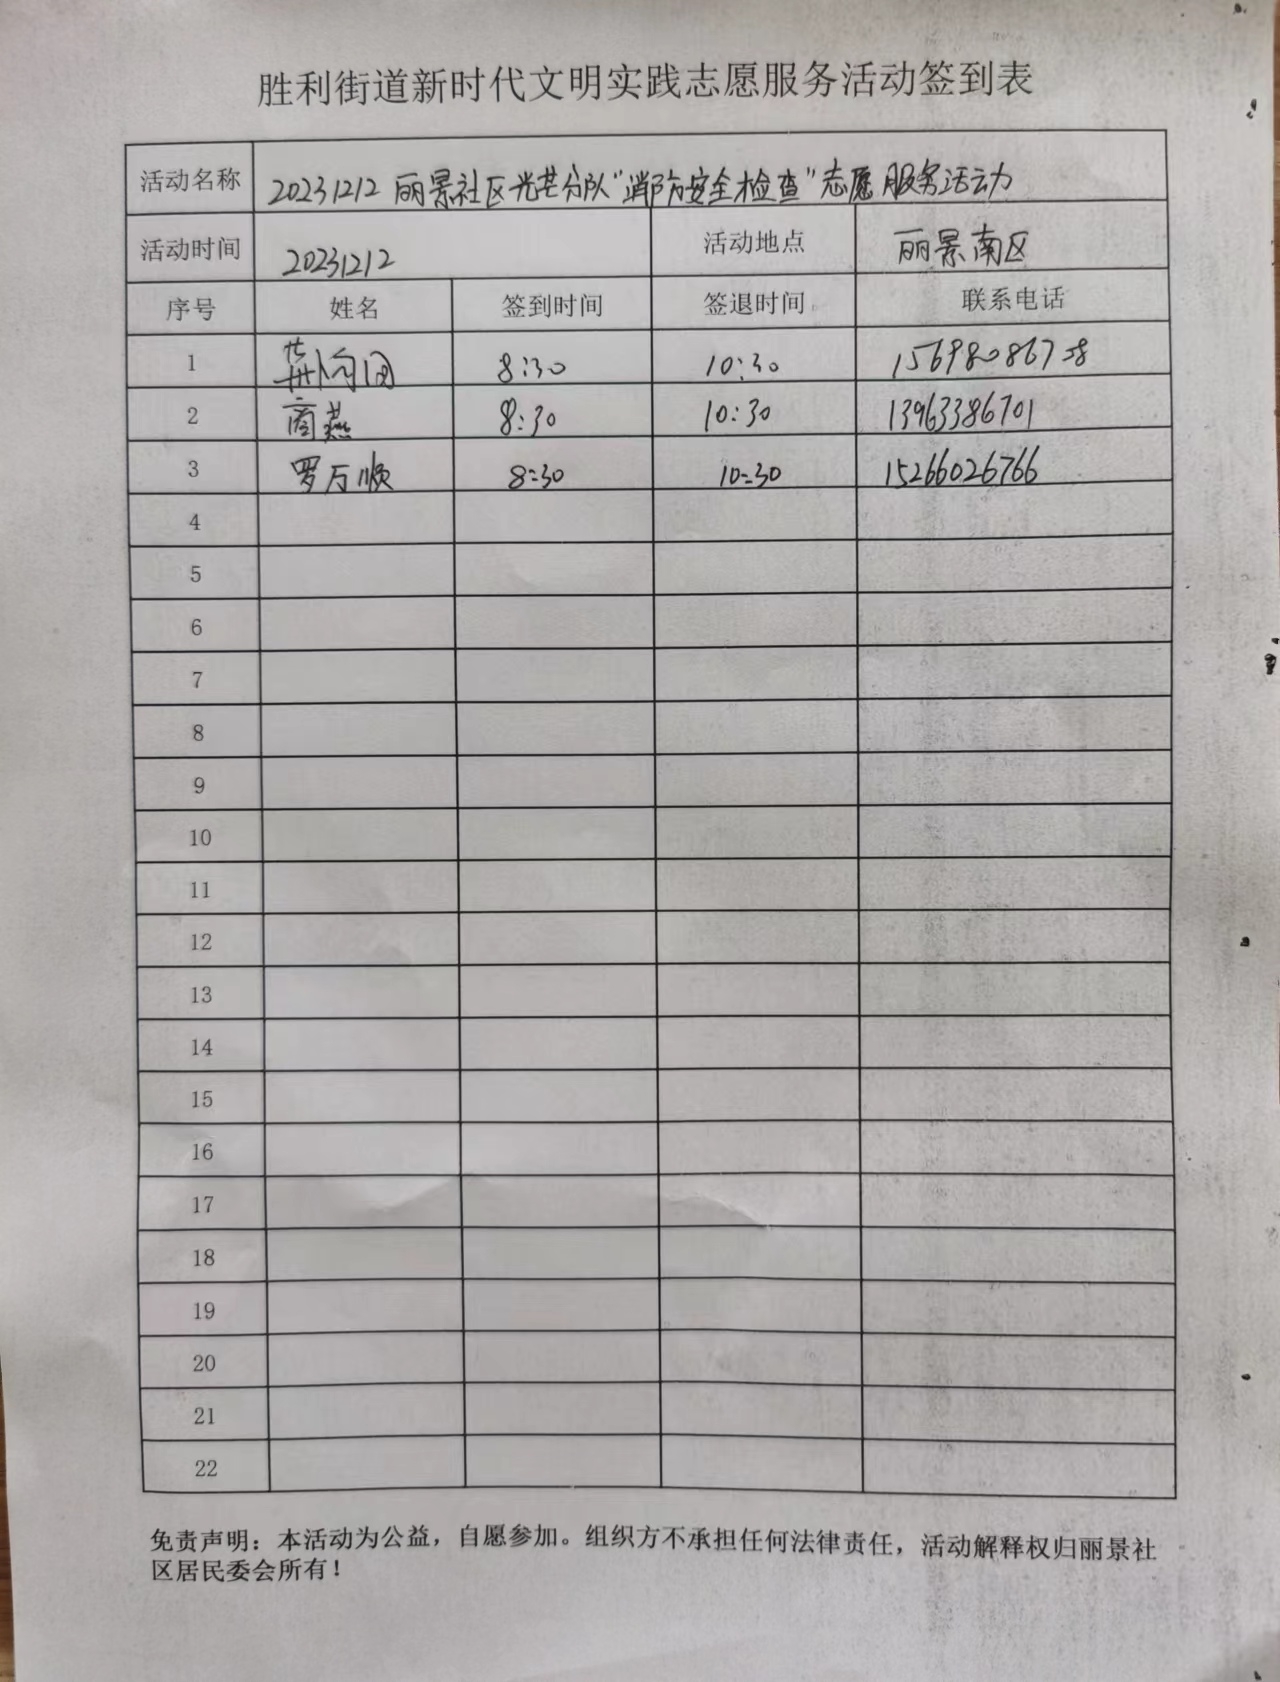 胜利街道新时代文明实践志愿服务活动签到表
活动名称 20231212 丽景社区光芒分队“消防安全检查”志愿服务活动
活动时间 20231212 活动地点 丽景南区
序号 姓名 签到时间 签退时间 联系电话
1 8:30 10:30
2 商燕 8:30 10:30 13963386701
3 罗万顺 8:30 10:30 15266026766
4
5
6
7
8
9
10
11
12
13
14
15
16
17
18
19
20
21
22
免责声明：本活动为公益，自愿参加。组织方不承担任何法律责任，活动解释权归丽景社
区居民委会所有！